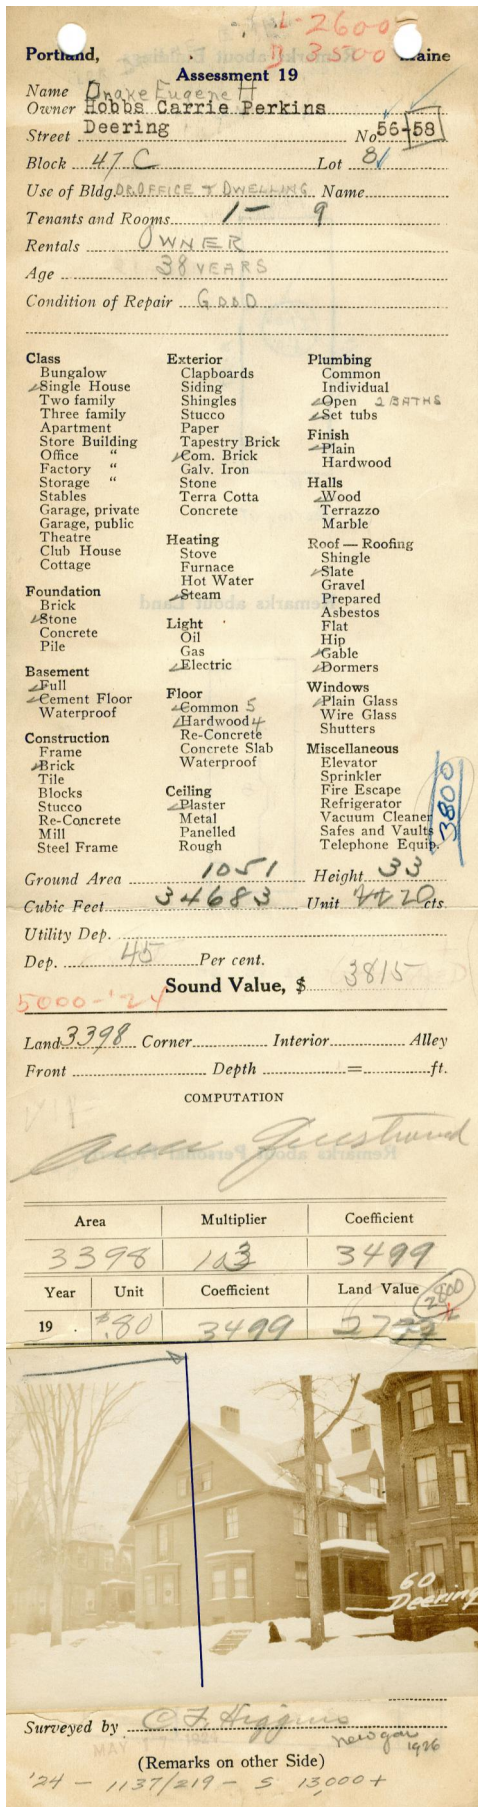 L-2600
B 3500
Portland, Maine
Assessment 19
Name Drake Eugene H
Owner Hobbs Carrie Perkins
Street Deering No 56-58
Block 47 C Lot 8
Use of Bldg. DR. OFFICE & DWELLING Name
Tenants and Rooms 1 - 9
Rentals OWNER
Age 38 YEARS
Condition of Repair GOOD
Class
Bungalow
Single House
Two family
Three family
Apartment
Store Building
Office "
Factory "
Storage "
Stables
Garage, private
Garage, public
Theatre
Club House
Cottage
Foundation
Brick
Stone
Concrete
Pile
Basement
Full
Cement Floor
Waterproof
Construction
Frame
Brick
Tile
Blocks
Stucco
Re-Concrete
Mill
Steel Frame
Exterior
Clapboards
Siding
Shingles
Stucco
Paper
Tapestry Brick
Com. Brick
Galv. Iron
Stone
Terra Cotta
Concrete
Heating
Stove
Furnace
Hot Water
Steam
Light
Oil
Gas
Electric
Floor
Common 5
Hardwood 4
Re-Concrete
Concrete Slab
Waterproof
Ceiling
Plaster
Metal
Panelled
Rough
Plumbing
Common
Individual
Open 2 BATHS
Set tubs
Finish
Plain
Hardwood
Halls
Wood
Terrazzo
Marble
Roof — Roofing
Shingle
Slate
Gravel
Prepared
Asbestos
Flat
Hip
Gable
Dormers
Windows
Plain Glass
Wire Glass
Shutters
Miscellaneous
Elevator
Sprinkler
Fire Escape
Refrigerator
Vacuum Cleaner
Safes and Vaults
Telephone Equip.
3800
Ground Area 1051 Height 33
Cubic Feet 34683 Unit 20 cts.
Utility Dep.
Dep. 45 Per cent.
Sound Value, $ 3815
5000-'24
Land 3398 Corner Interior Alley
Front Depth = ft.
COMPUTATION
Area Multiplier Coefficient
3398 103 3499
Year Unit Coefficient Land Value
2800
19 $.80 3499
60
Deering
Surveyed by C. F. Higgins
new gar
1926
(Remarks on other Side)
'24 - 1137/219 - S 13,000+